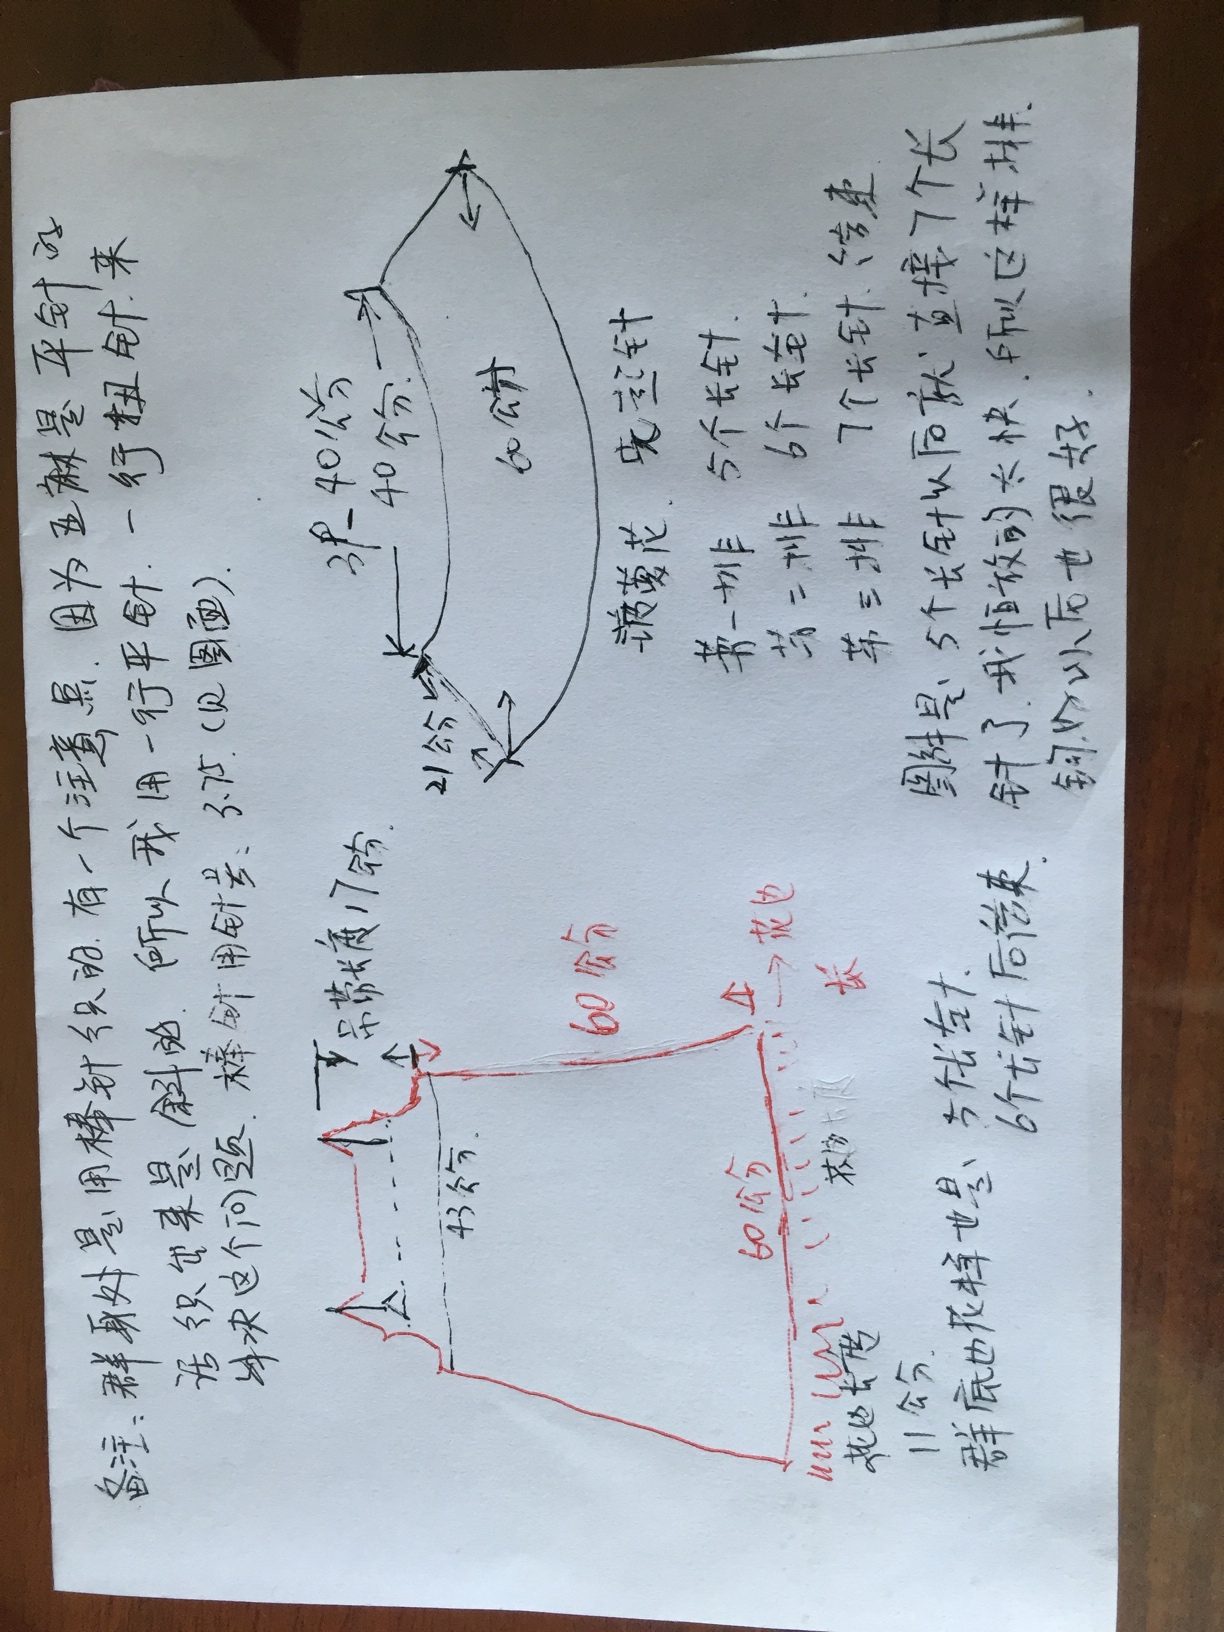 备注：群身处是用棒针织的.有一个注意点.因为亚麻是平针的
话织出来是斜的.所以我用一行平针.一行扭针.来
解决这个问题.棒针用针号：3.75.(见图画).
吊带长度17公分.
43公分.
60公分
60公分
→花边
长
花边长度
花边长度
11公分.
群底边花样也是、5个长针.
6个长针后结束.
38-40公分
40公分.
21公分
60公分
菠萝花.
第一排 5个长针.
第二排 6个长针.
第三排 7个长针.结束
图纸是、5个长针以后就、直接7个长
针了.我恒放的太快.所以这样排.
钩以后也很好.